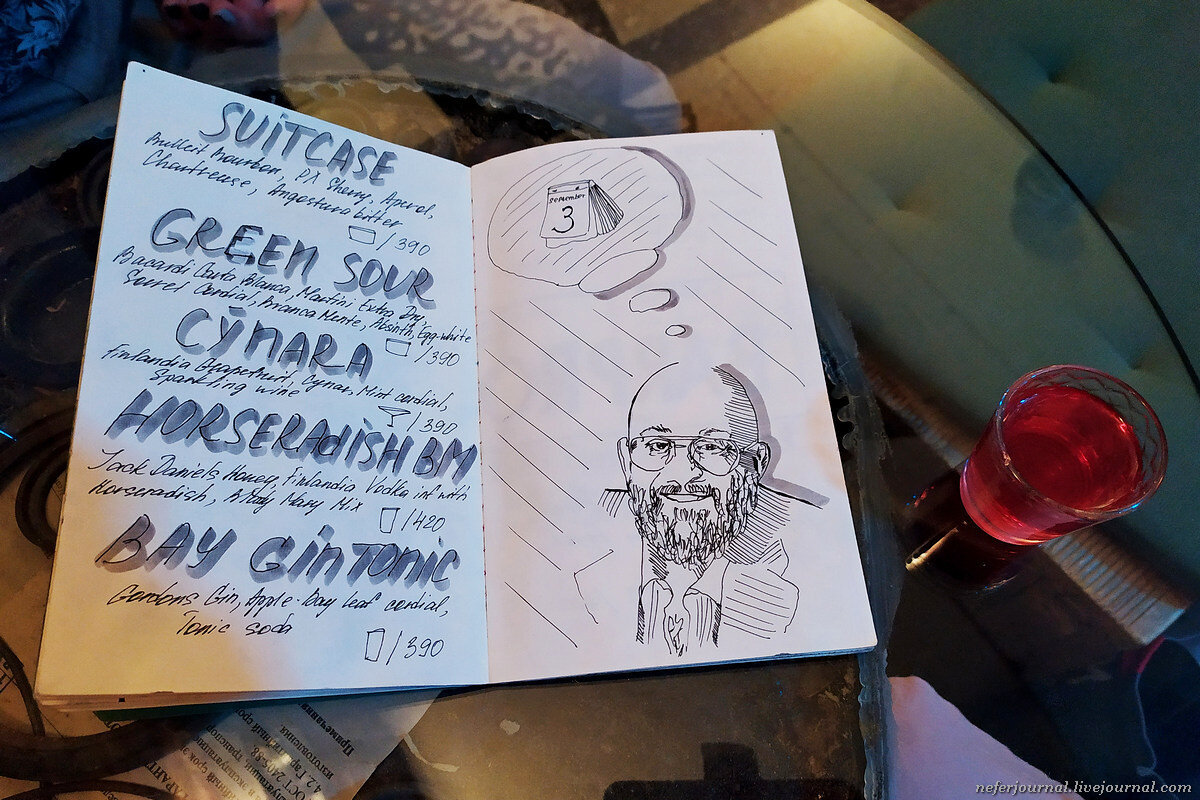 SUITCASE
Bulleit Bourbon, PX Sherry, Aperol,
Chartreuse, Angostura bitter
/ 390
GREEN SOUR
Bacardi Carta Blanca, Martini Extra Dry,
Sorrel Cordial, Branca Mente, Absinth, Egg-white
/ 390
CÝNARA
Finlandia Grapefruit, Cynar, Mint cordial,
Sparkling wine
/ 390
HORSERADISH BM
Jack Daniels Honey, Finlandia Vodka inf with
Horseradish, Blody Mary Mix
/ 420
BAY GIN TONIC
Gordons Gin, Apple-Bay Leaf cordial,
Tonic soda
/ 390
September
3
Примечания
изготовления.
ГОСТ 2405-88
neferjournal.livejournal.com